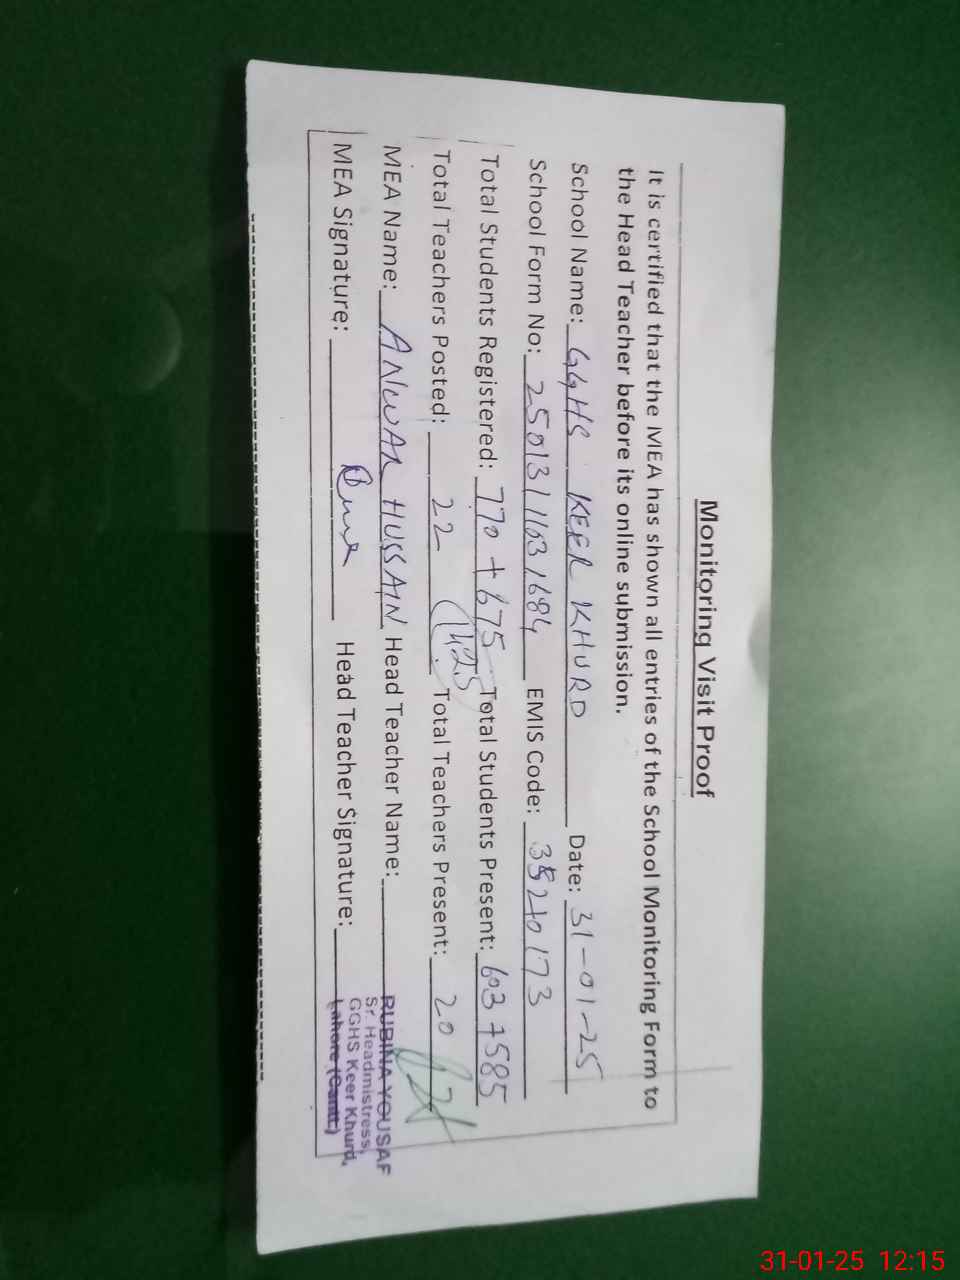 Monitoring Visit Proof
It is certified that the MEA has shown all entries of the School Monitoring Form to
the Head Teacher before its online submission.
School Name: GGHS KEER KHURD Date: 31-01-25
School Form No: 2501311031684 EMIS Code: 35210173
Total Students Registered: 770 + 675 Total Students Present: 603 + 585
Total Teachers Posted: 22 Total Teachers Present: 20
MEA Name: ANWAR HUSSAIN Head Teacher Name:
MEA Signature: Head Teacher Signature:
RUBINA YOUSAF
Sr. Headmistress,
GGHS Keer Khurd,
Lahore (Cantt)
31-01-25 12:15